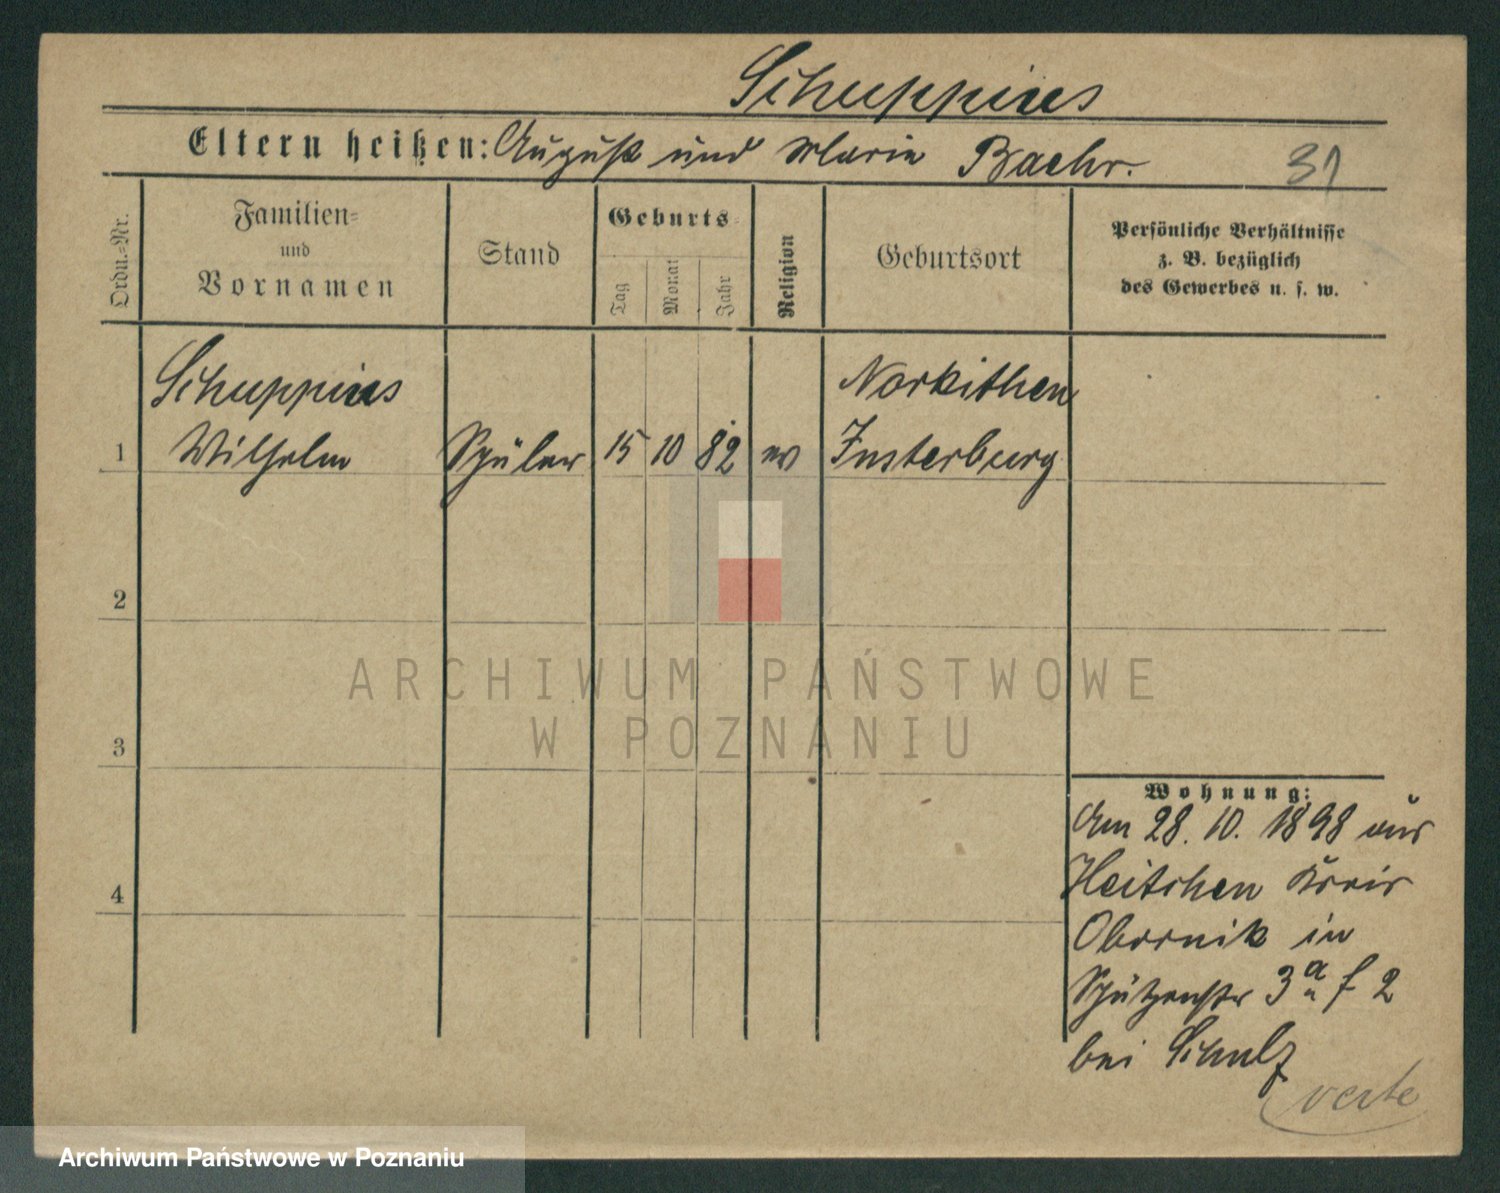 Schuppius
Eltern heißen: August und Marie Baehr.
31
Ordn.-Nr.
Familien-
und
Vornamen
Stand
Geburts-
Tag
Monat
Jahr
Religion
Geburtsort
Persönliche Verhältnisse
z. B. bezüglich
des Gewerbes u. s. w.
Schuppius
Norkithen
1 Wilhelm Schüler 15 10 82 ev Insterburg
2
ARCHIWUM PAŃSTWOWE
W POZNANIU
3
Wohnung:
Am 28. 10. 1898 aus
4
Kreis
Obornik in
Schützenstr 3a f 2
bei Schulz
verte
Archiwum Państwowe w Poznaniu